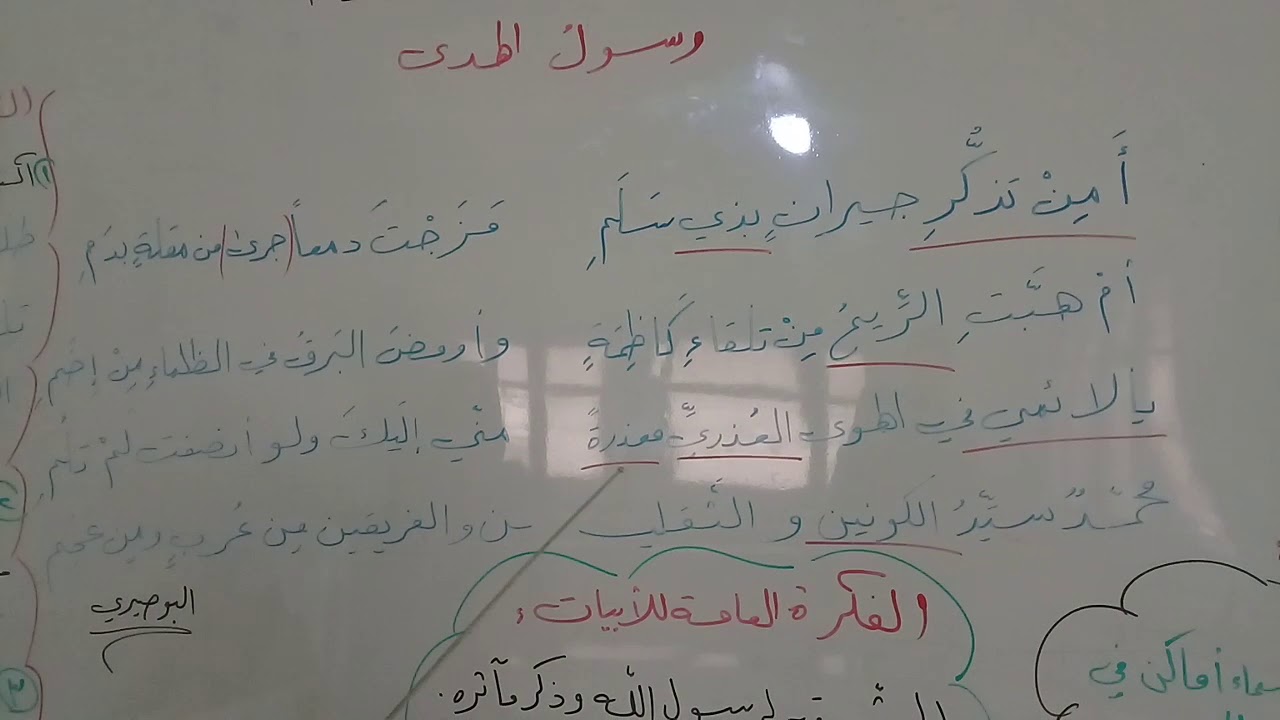 رسولُ الهدى
أَمِنْ تَذَكُّرِ جيرانٍ بِذي سَلَمِ مَزَجْتَ دمعاً (جرى) من مقلةٍ بِدَمِ
أمْ هبَّتِ الرِّيحُ مِنْ تلقاءِ كَاظِمَةٍ وأومضَ البَرقُ في الظلماءِ مِنْ إضمِ
يا لائمي في الهوى العُذريِّ معذرةً منّي إليكَ ولو أنصفت لمْ تلُمِ
محمّدٌ سيِّدُ الكونين و الثَّقليـ ـن والفريقين مِن عُربٍ ومِن عجمِ
البوصيري
الفكرة العامة للأبيات:
لرسول الله وذكر مآثره.
أماكن في
١
٢
٣